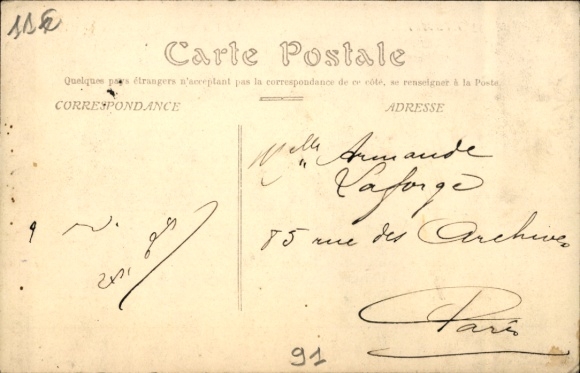 Carte Postale
Quelques pays étrangers n'acceptant pas la correspondance de ce côté, se renseigner à la Poste.
CORRESPONDANCE
ADRESSE
Melle Armande
Laforge
85 rue des Archives
Paris
91